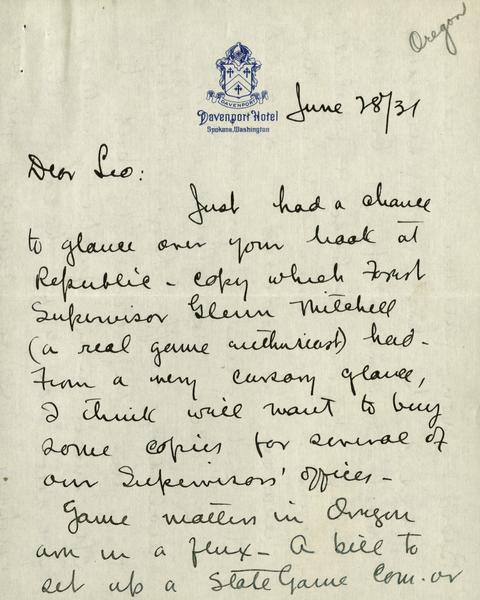 Oregon
DAVENPORT
Davenport Hotel
Spokane, Washington
June 28/31
Dear Leo:
Just had a chance
to glance over your book at
Republic - copy which Forest
Supervisor Glenn Mitchell
(a real game enthusiast) had -
From a very cursory glance,
I think we'll want to buy
some copies for several of
our Supervisors' offices -
Game matters in Oregon
are in a flux - A bill to
set up a State Game Com. or